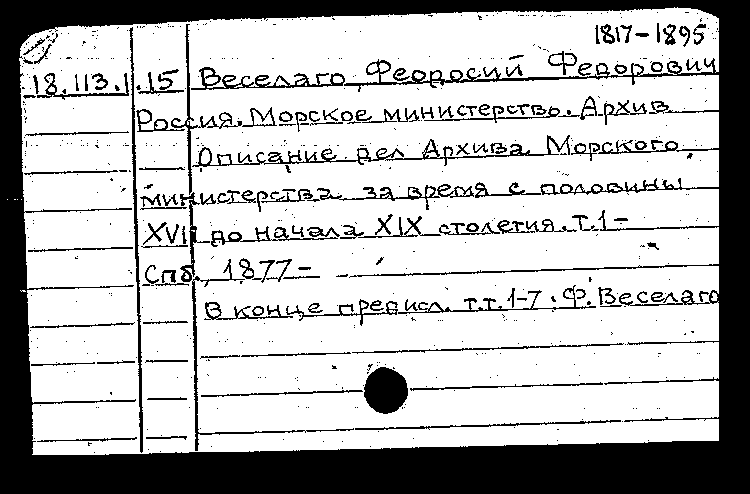 1817-1895
18.113.1.15 Веселаго, Феодосий Федорович
Россия. Морское министерство. Архив
Описание дел Архива Морского
министерства за время с половины
XVII до начала XIX столетия. Т.1-
Спб., 1877-
В конце предисл. т.т. 1-7: Ф. Веселаго